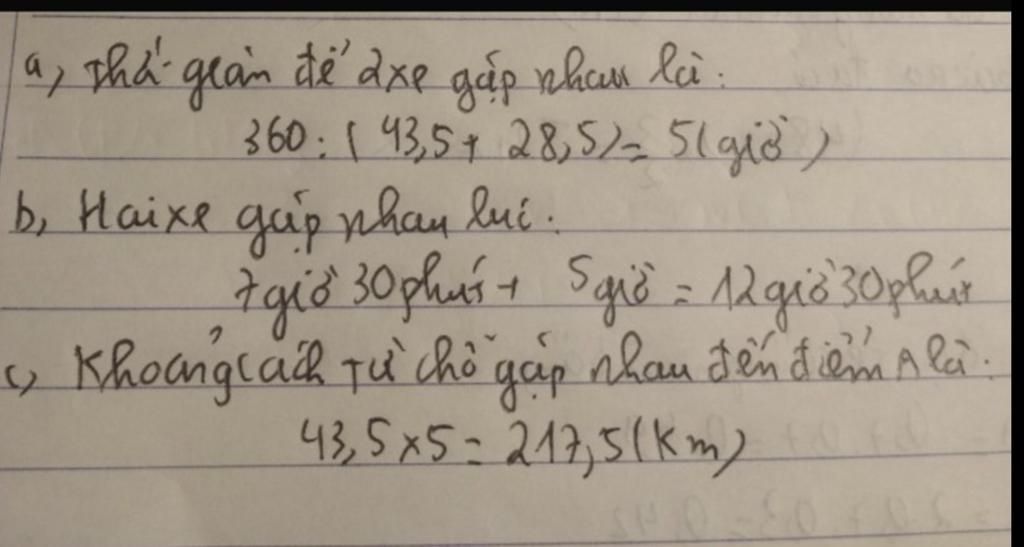 a, Thời gian để 2 xe gặp nhau là:
360 : ( 43,5 + 28,5) = 5 (giờ)
b, Hai xe gặp nhau lúc:
7 giờ 30 phút + 5 giờ = 12 giờ 30 phút
c, Khoảng cách từ chỗ gặp nhau đến điểm A là:
43,5 x 5 = 217,5 (Km)